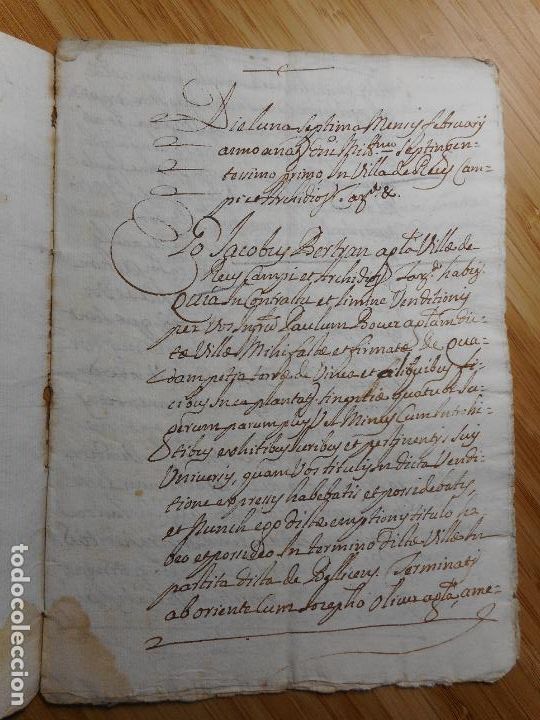 Die luna septima Mensis februarij
anno a nat. Dni Mill.mo septingen-
tesimo primo In Villa de Reus Cam-
pi et Archidios. &.
Ego Jacobus Bertran apta Villæ de
Reus Campi et Archidios
Quia In Contractu et limine Venditionis
per Vos Paulum Bover aptam dic-
tæ Villæ Mihi factæ et firmatæ de qua-
dam petia terræ de Vinea et Olibibus
plantat quatuor
parum plus Vel Minus Cum introhi-
tibus exhitibus Iuribus et pertinentijs suis
Universis, quam Vos titulis In dicta Vendi-
tione expressis habebatis et possidebatis
et Nunch ego dictæ emptionis titulo ha-
beo et possideo In termino dictæ Villæ In
partita dicta de Terminat
ab oriente Cum Josepho Oliver apta, a me-
todocoleccion.net